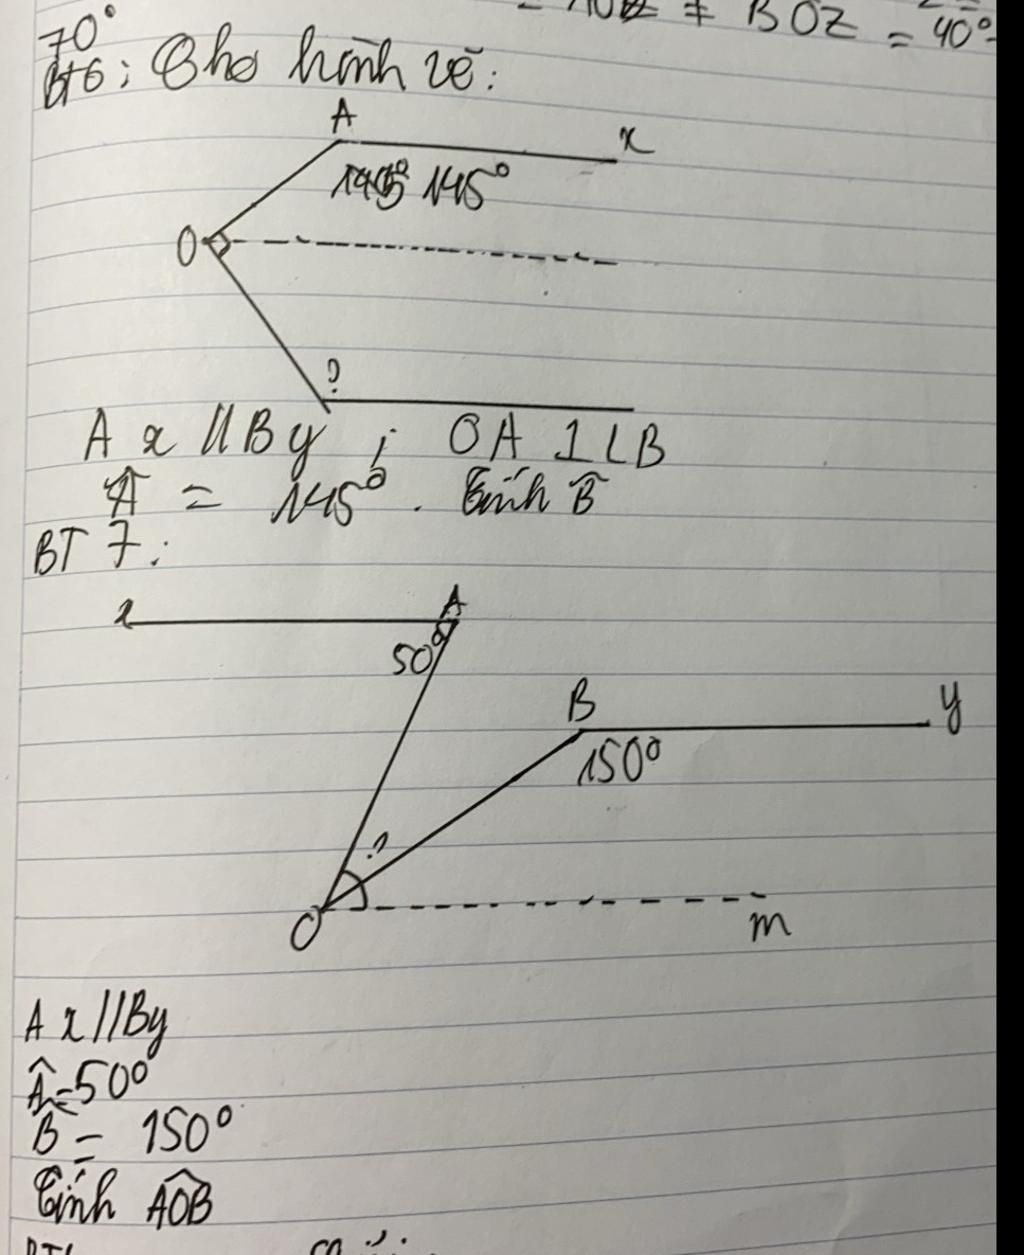 = 40°
BOZ
70°
BT6: Cho hình vẽ:
A
x
145°
O
?
A x // By ; OA ⊥ LB
Â = 145°. Tính B̂
BT 7:
x
A
50°
B
y
150°
?
O
m
A x // By
Â = 50°
B̂ = 150°
Tính AÔB